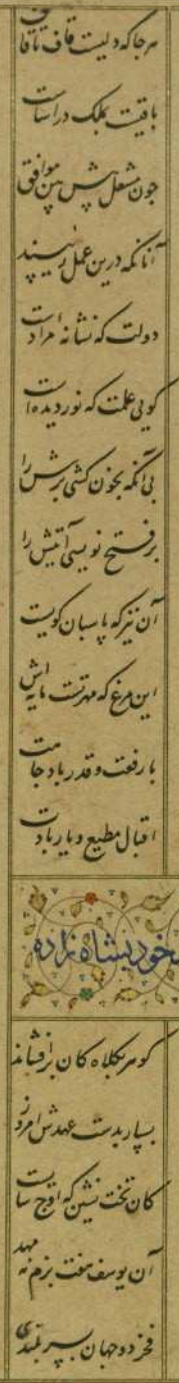 هر جا که دلیست قاف تا قاف
باقیت بملک در است
چون مشعل پیش بین موافق
آنانکه درین عمل رئیسند
دولت که نشانه مراد است
گویی علمت که نور دیده است
بی آنکه بخون کشی برش را
بر فتح نویسی آیتش را
آن نیز که پاسبان کویت
این مرغ که مهر تست مایه اش
با رفعت و قدر باد جامت
اقبال مطیع و یار بادت
خود بشاه زاده
گوهر بکلاه کان برافشاند
بسپار بدست عهدش امروز
کان تخت نشین که اوج سایست
آن یوسف هفت بزم نه مهد
فخر دو جهان بسر بلندی